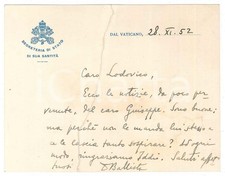 SEGRETERIA DI STATO
DI SUA SANTITÀ
DAL VATICANO, 28. XI. 52
Caro Lodovico,
Ecco le notizie, da poco per-
venute, del caro Giuseppe. Sono buone;
ma perché non le manda lui stesso
e le lascia tanto sospirare? Ad ogni
modo, ringraziamo Iddio. Saluti affet-
tuosi
Battista